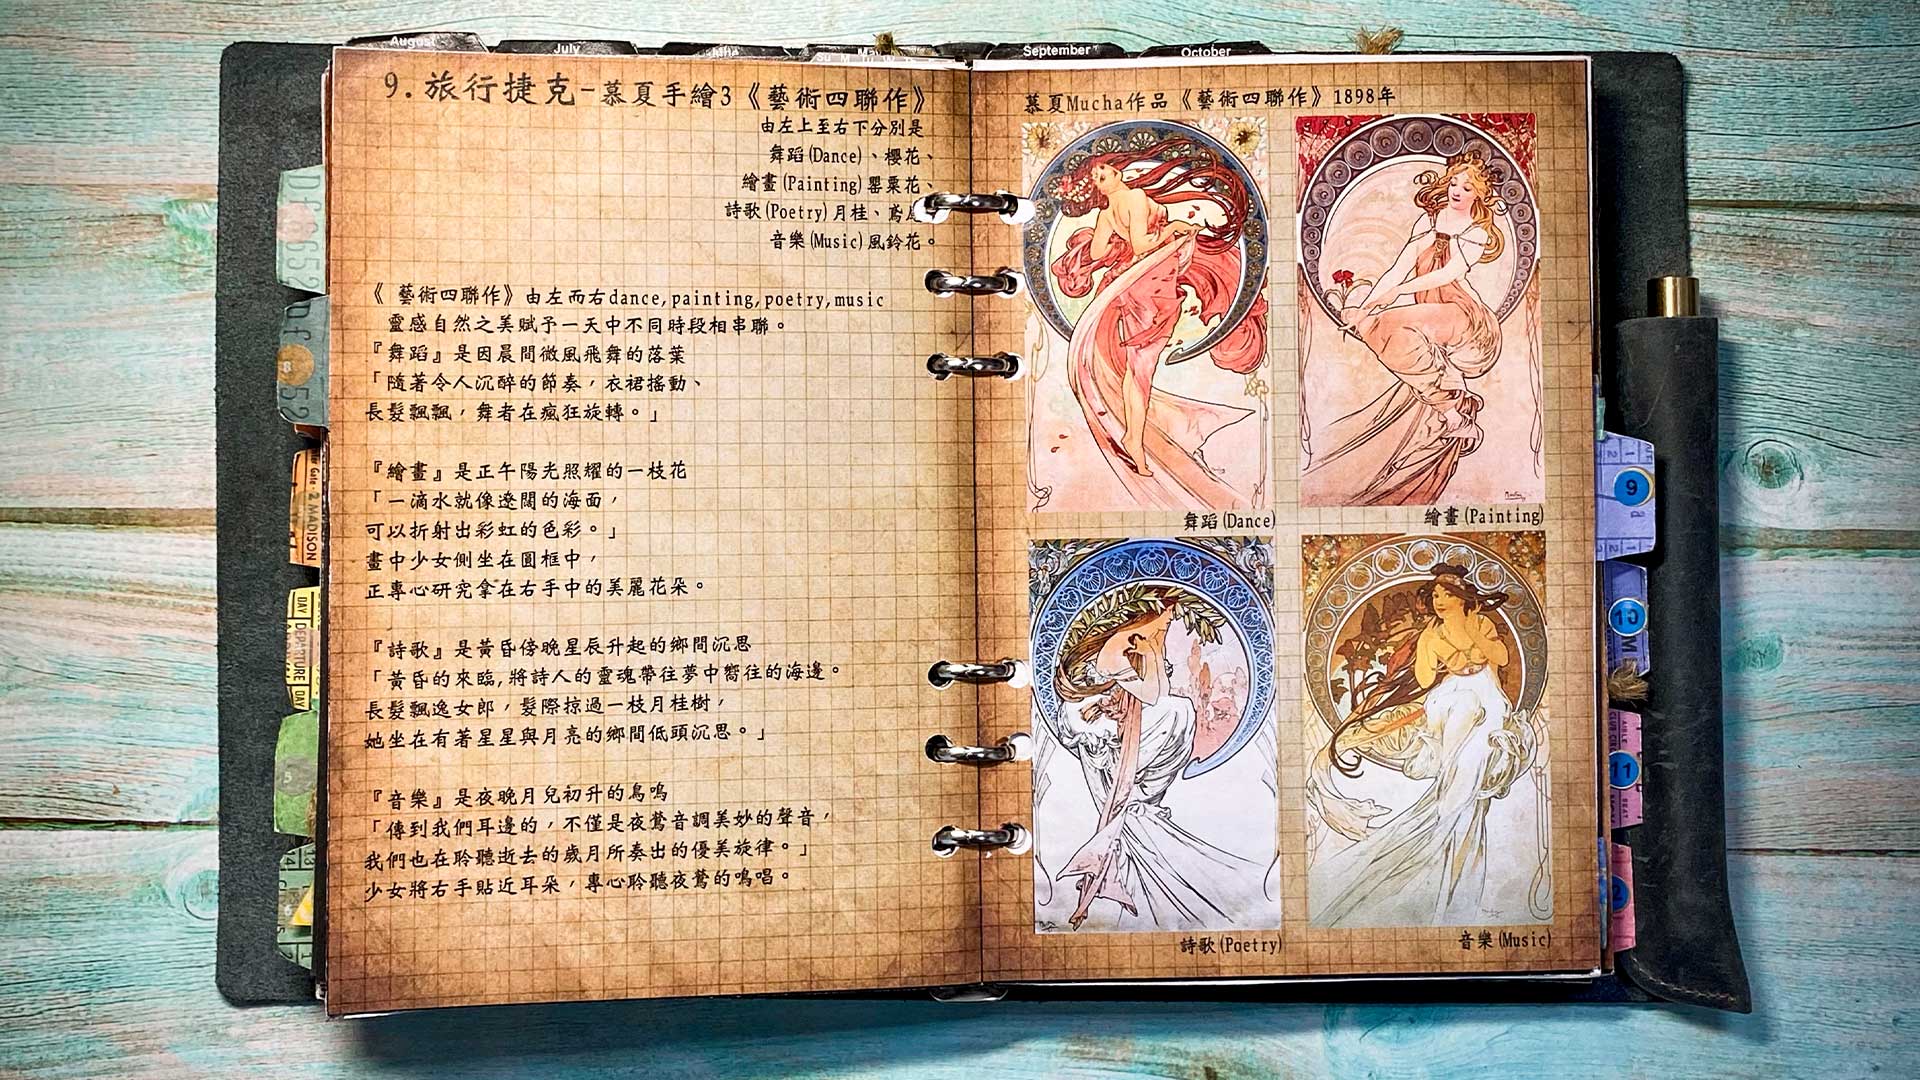 August
July
May
September
October
9.旅行捷克-慕夏手繪3《藝術四聯作》
由左上至右下分別是
舞蹈(Dance)、櫻花、
繪畫(Painting)罌粟花、
詩歌(Poetry)月桂、鳶
音樂(Music)風鈴花。
《 藝術四聯作》由左而右dance,painting,poetry,music
靈感自然之美賦予一天中不同時段相串聯。
『舞蹈』是因晨間微風飛舞的落葉
「隨著令人沉醉的節奏，衣裙搖動、
長髮飄飄，舞者在瘋狂旋轉。」
『繪畫』是正午陽光照耀的一枝花
「一滴水就像遼闊的海面，
可以折射出彩虹的色彩。」
畫中少女側坐在圓框中，
正專心研究拿在右手中的美麗花朵。
『詩歌』是黃昏傍晚星辰升起的鄉間沉思
「黃昏的來臨,將詩人的靈魂帶往夢中嚮往的海邊。
長髮飄逸女郎，髮際掠過一枝月桂樹，
她坐在有著星星與月亮的鄉間低頭沉思。」
『音樂』是夜晚月兒初升的鳥鳴
「傳到我們耳邊的，不僅是夜鶯音調美妙的聲音，
我們也在聆聽逝去的歲月所奏出的優美旋律。」
少女將右手貼近耳朵，專心聆聽夜鶯的鳴唱。
慕夏Mucha作品《藝術四聯作》1898年
舞蹈(Dance)
繪畫(Painting)
詩歌(Poetry)
音樂(Music)
8
2 MADISON
DAY DEPARTURE DAY
5
6
9
10
11